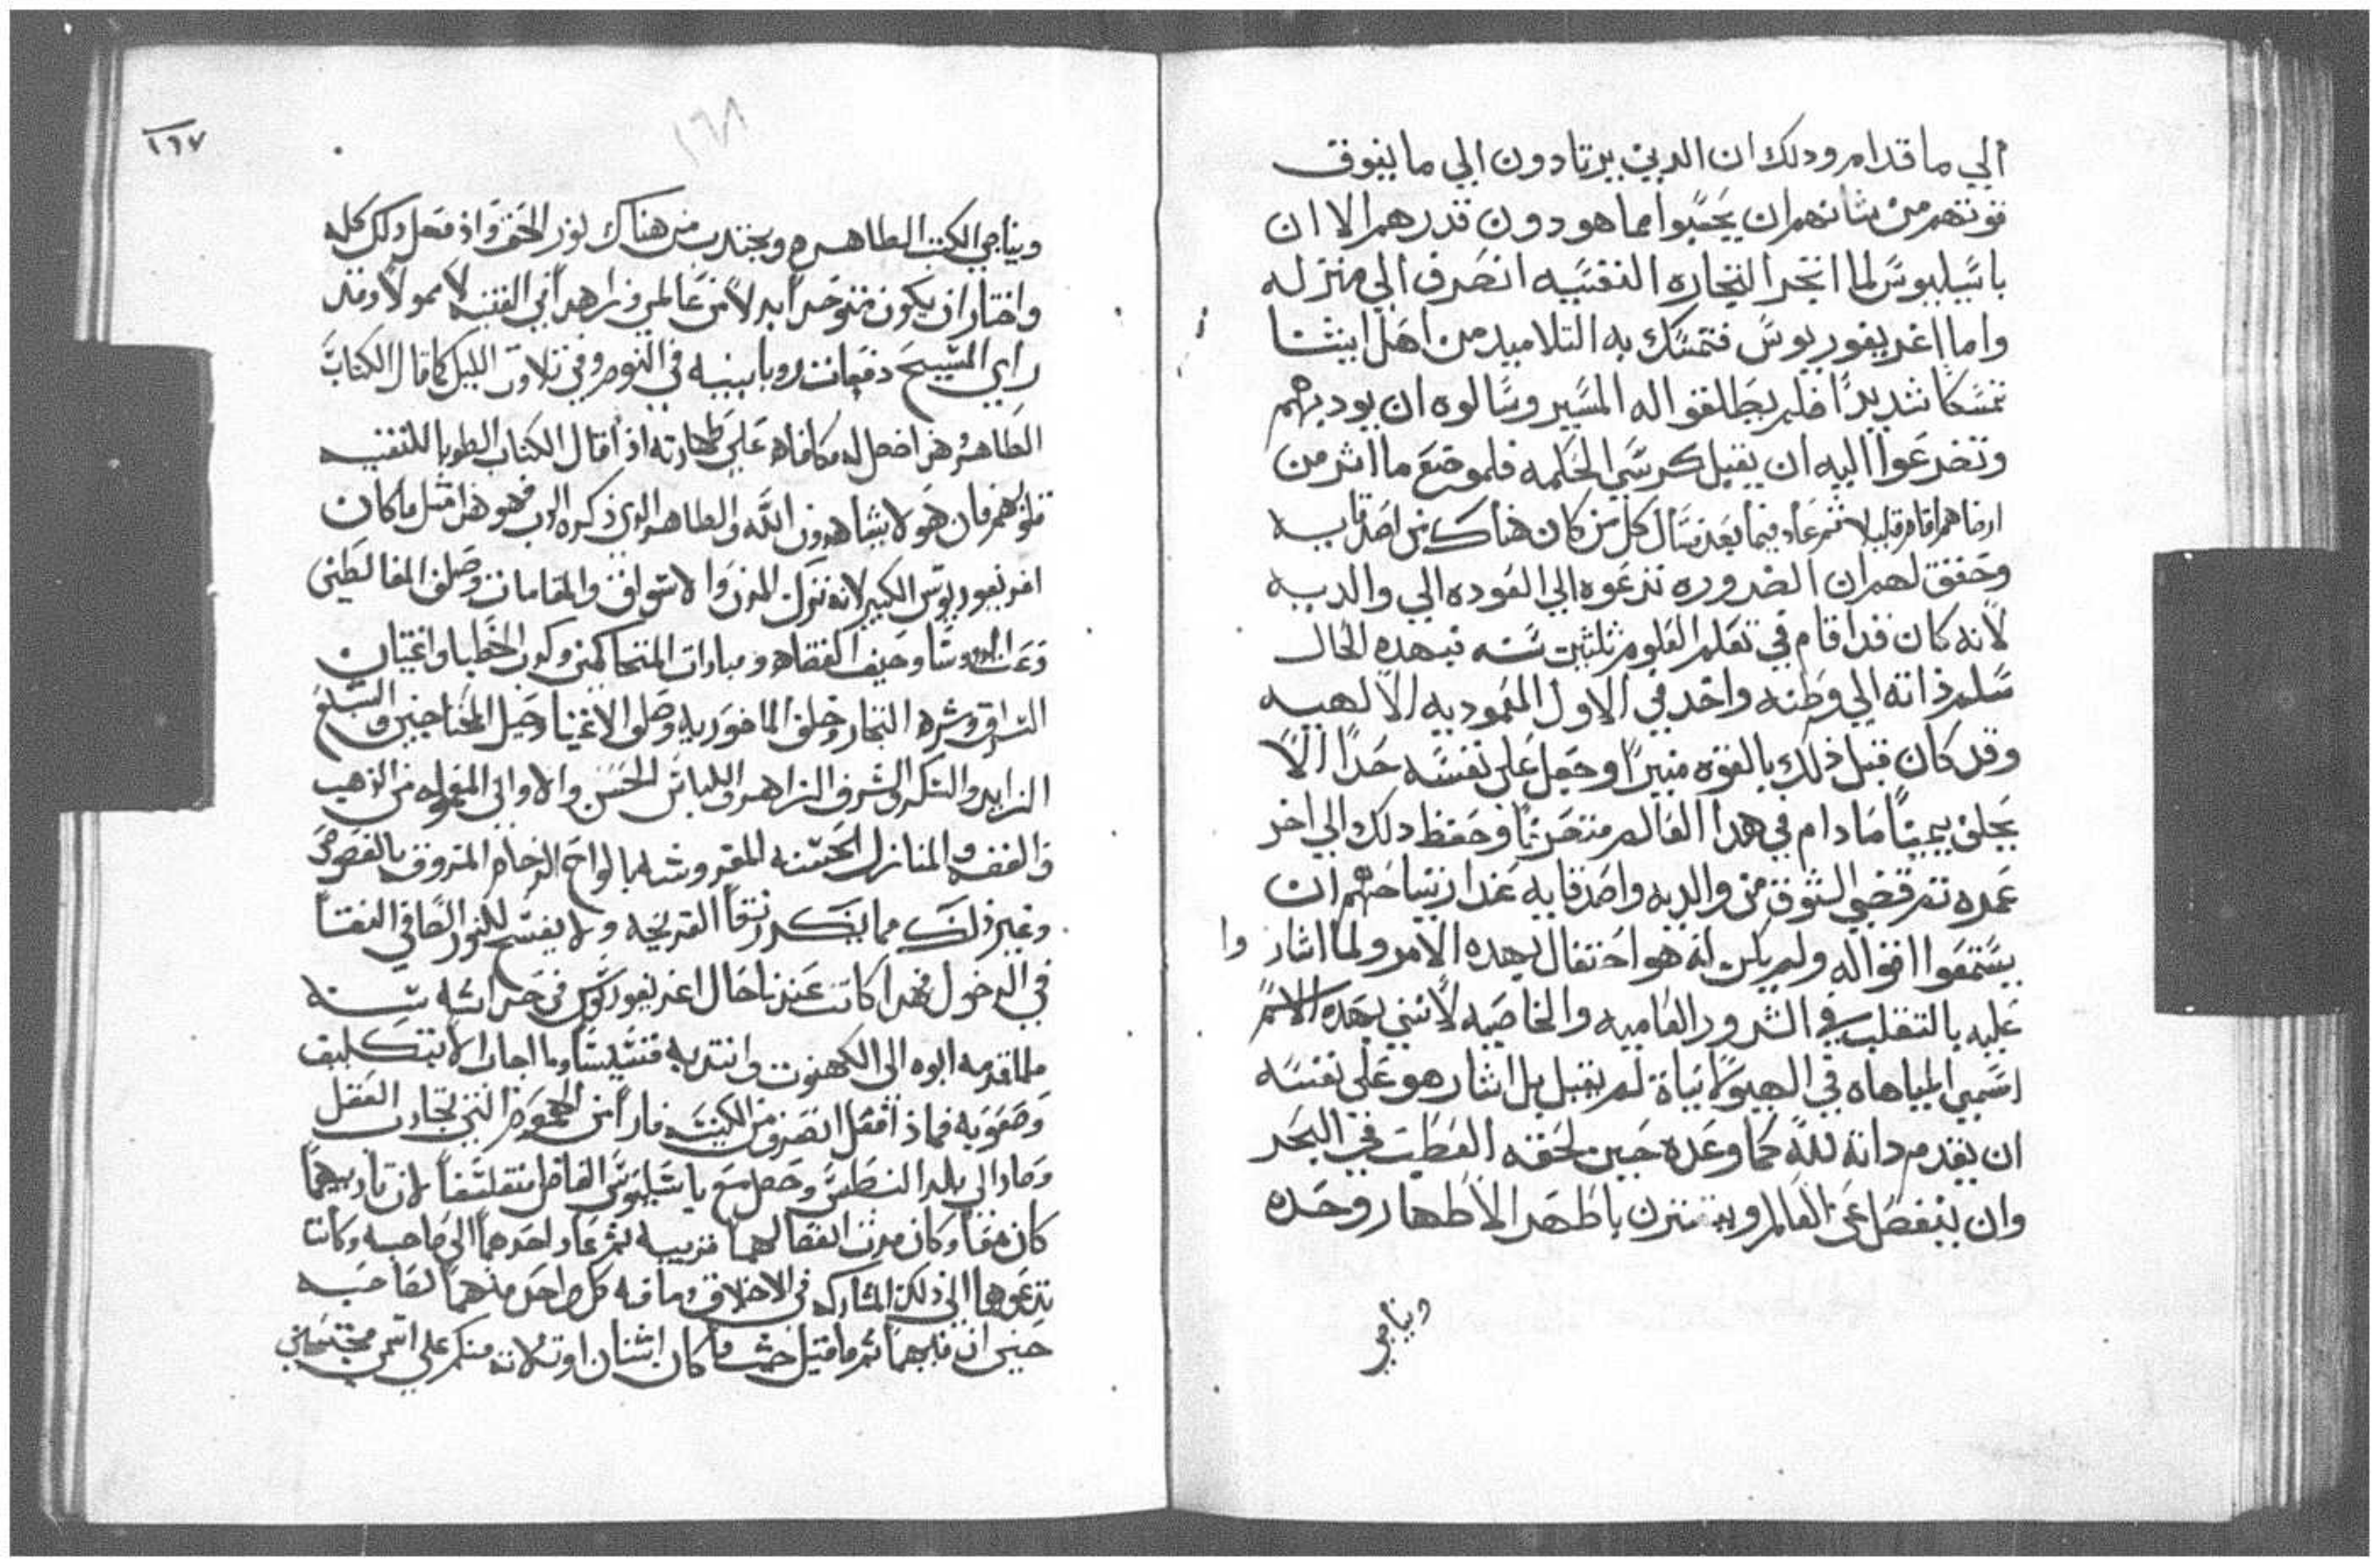 الي ما قدام ودلك ان الدين يرتادون الي ما يفوق
قوتهم من شانهم ان يخيبوا مما هو دون قدرهم الا ان
باسيليوس لما اتجر التجاره النفسيه انصرف الي منزله
واما اغريغوريوس فتمسك به التلاميد من اهل اثينا
تمسكا شديدًا فلم يطلقوا له المسير وسالوه ان يوديهم
وتضرعوا اليه ان يقبل كرسي الحكمه فلموضع ما اثر من
ارضاهم اقام قليلا ثم عاد فيما بعد نسال كل من كان هناك من اصدقايه
وحقق لهم ان الضروره تدعوه الي العوده الي والديه
لانه كان قد اقام في تعلم العلوم ثلثين سنه فبهده الحال
سلم ذاته الي وطنه واخد في الاول المعموديه الالهيه
وقد كان قبل ذلك بالقوه منيرًا وجعل علي نفسه حدًا الا
يحلف يمينًا ما دام في هدا العالم متصرفًا وحفظ دلك الي اخر
عمده ثم قضي الشوق من والديه واصدقايه عند ارتياحهم ان
يستمعوا اقواله ولم يكن له هو احتفال بهده الامر ولما اشار وا
عليه بالتقلب في الشرور العاميه والخاصيه لانني بهده الاسم
اسمي المباهاه في الهيولانيات لم يقبل بل اشار هو علي نفسه
ان يقدم داته لله كما وعده حين لحقه العطب في البحر
وان ينفصل عن العالم ويقترن باطهر الاطهار وحده
ويناجي
١٦٧
١٦٨
ويناجي الكتب الطاهره ويجتدب من هناك نور الحق واذ فعل ذلك كله
واختار ان يكون متوحدا بدلا من عالمي وزاهدا في القنيه لا ممولا وقد
راي المسيح دفعات روبا بينيه في النوم وفي تلاوت الليل كما قال الكتاب
الطاهر هذا فعل له مكافاه علي طهارته اذ قال الكتاب الطوبا للنقيه
قلوبهم فان هولا يشاهدون الله والطاهر الدي ذكره الرب فهو هذا مثل ما كان
اغريغوريوس الكبير لانه ترك المدن والاسواق والمقامات وصلف المغالطين
الروسا وحيف القضاه ومبارات المتحاكمين وكدب الخطبا واغتيان
السراق وشره التجار وخلف الماخوريه وصلف الاغنيا وحيل المحتاجين والشبع
الزايد والسكر والشرف الزاهر واللباس الحسن والاواني المعموله من الذهب
والفضه والمنازل الحسنه المفروشه بالواح الرخام المزوق بالفصوص
وغير ذلك مما يكدر نقا القريحه ولا يفسح للنور الصافي النقي
في الدخول فهدا كانت عندنا حال اغريغوريوس في حراسه سنه
فلما قدمه ابوه الى الكهنوت وانتدبه قسيسا وما اجاب الا بتكليف
وصعوبه فماذا فعل انصرف من الكنيسه فارا من الجموع التي تجادب العقل
وصار الي بلد البنطس وحصل مع باسيليوس الفاضل متفلسفا لان تاديبهما
كان معا وكان مدت انفصالهما قريبه ثم عاد احدهما الى صاحبه وكانت
تدعوهما الي ذلك المشاركه في الاخلاق وما فيه كل واحد منهما لصاحبه
حنين ان فيهما ثم ما قيل حيث ما كان اثنان او ثلاثه منكم علي اسمي مجتمعين